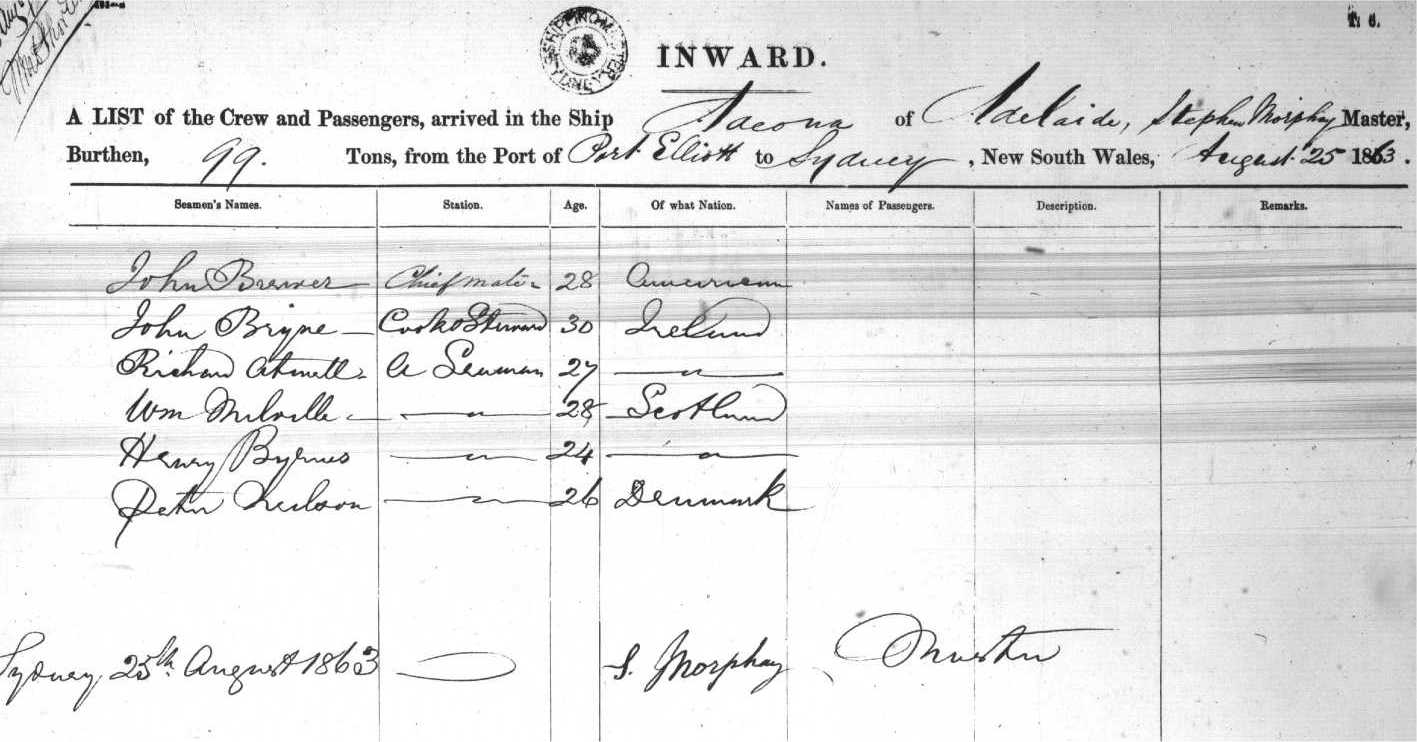 T. 6.
SHIPPING MASTER
INWARD.
A LIST of the Crew and Passengers, arrived in the Ship Nacona of Adelaide, Stephen Morphay Master,
Burthen, 99. Tons, from the Port of Port Elliott to Sydney, New South Wales, August 25 1863.
Seamen's Names. Station. Age. Of what Nation. Names of Passengers. Description. Remarks.
John Brewer Chief mate 28 American
John Bryne Cook & Steward 30 Ireland
Richard Atwell A Seaman 27 — " —
Wm Melville — " — 28 Scotland
Henry Byrnes — " — 24 — " —
Peter Neilson — " — 26 Denmark
Sydney 25th August 1863 S. Morphay Master